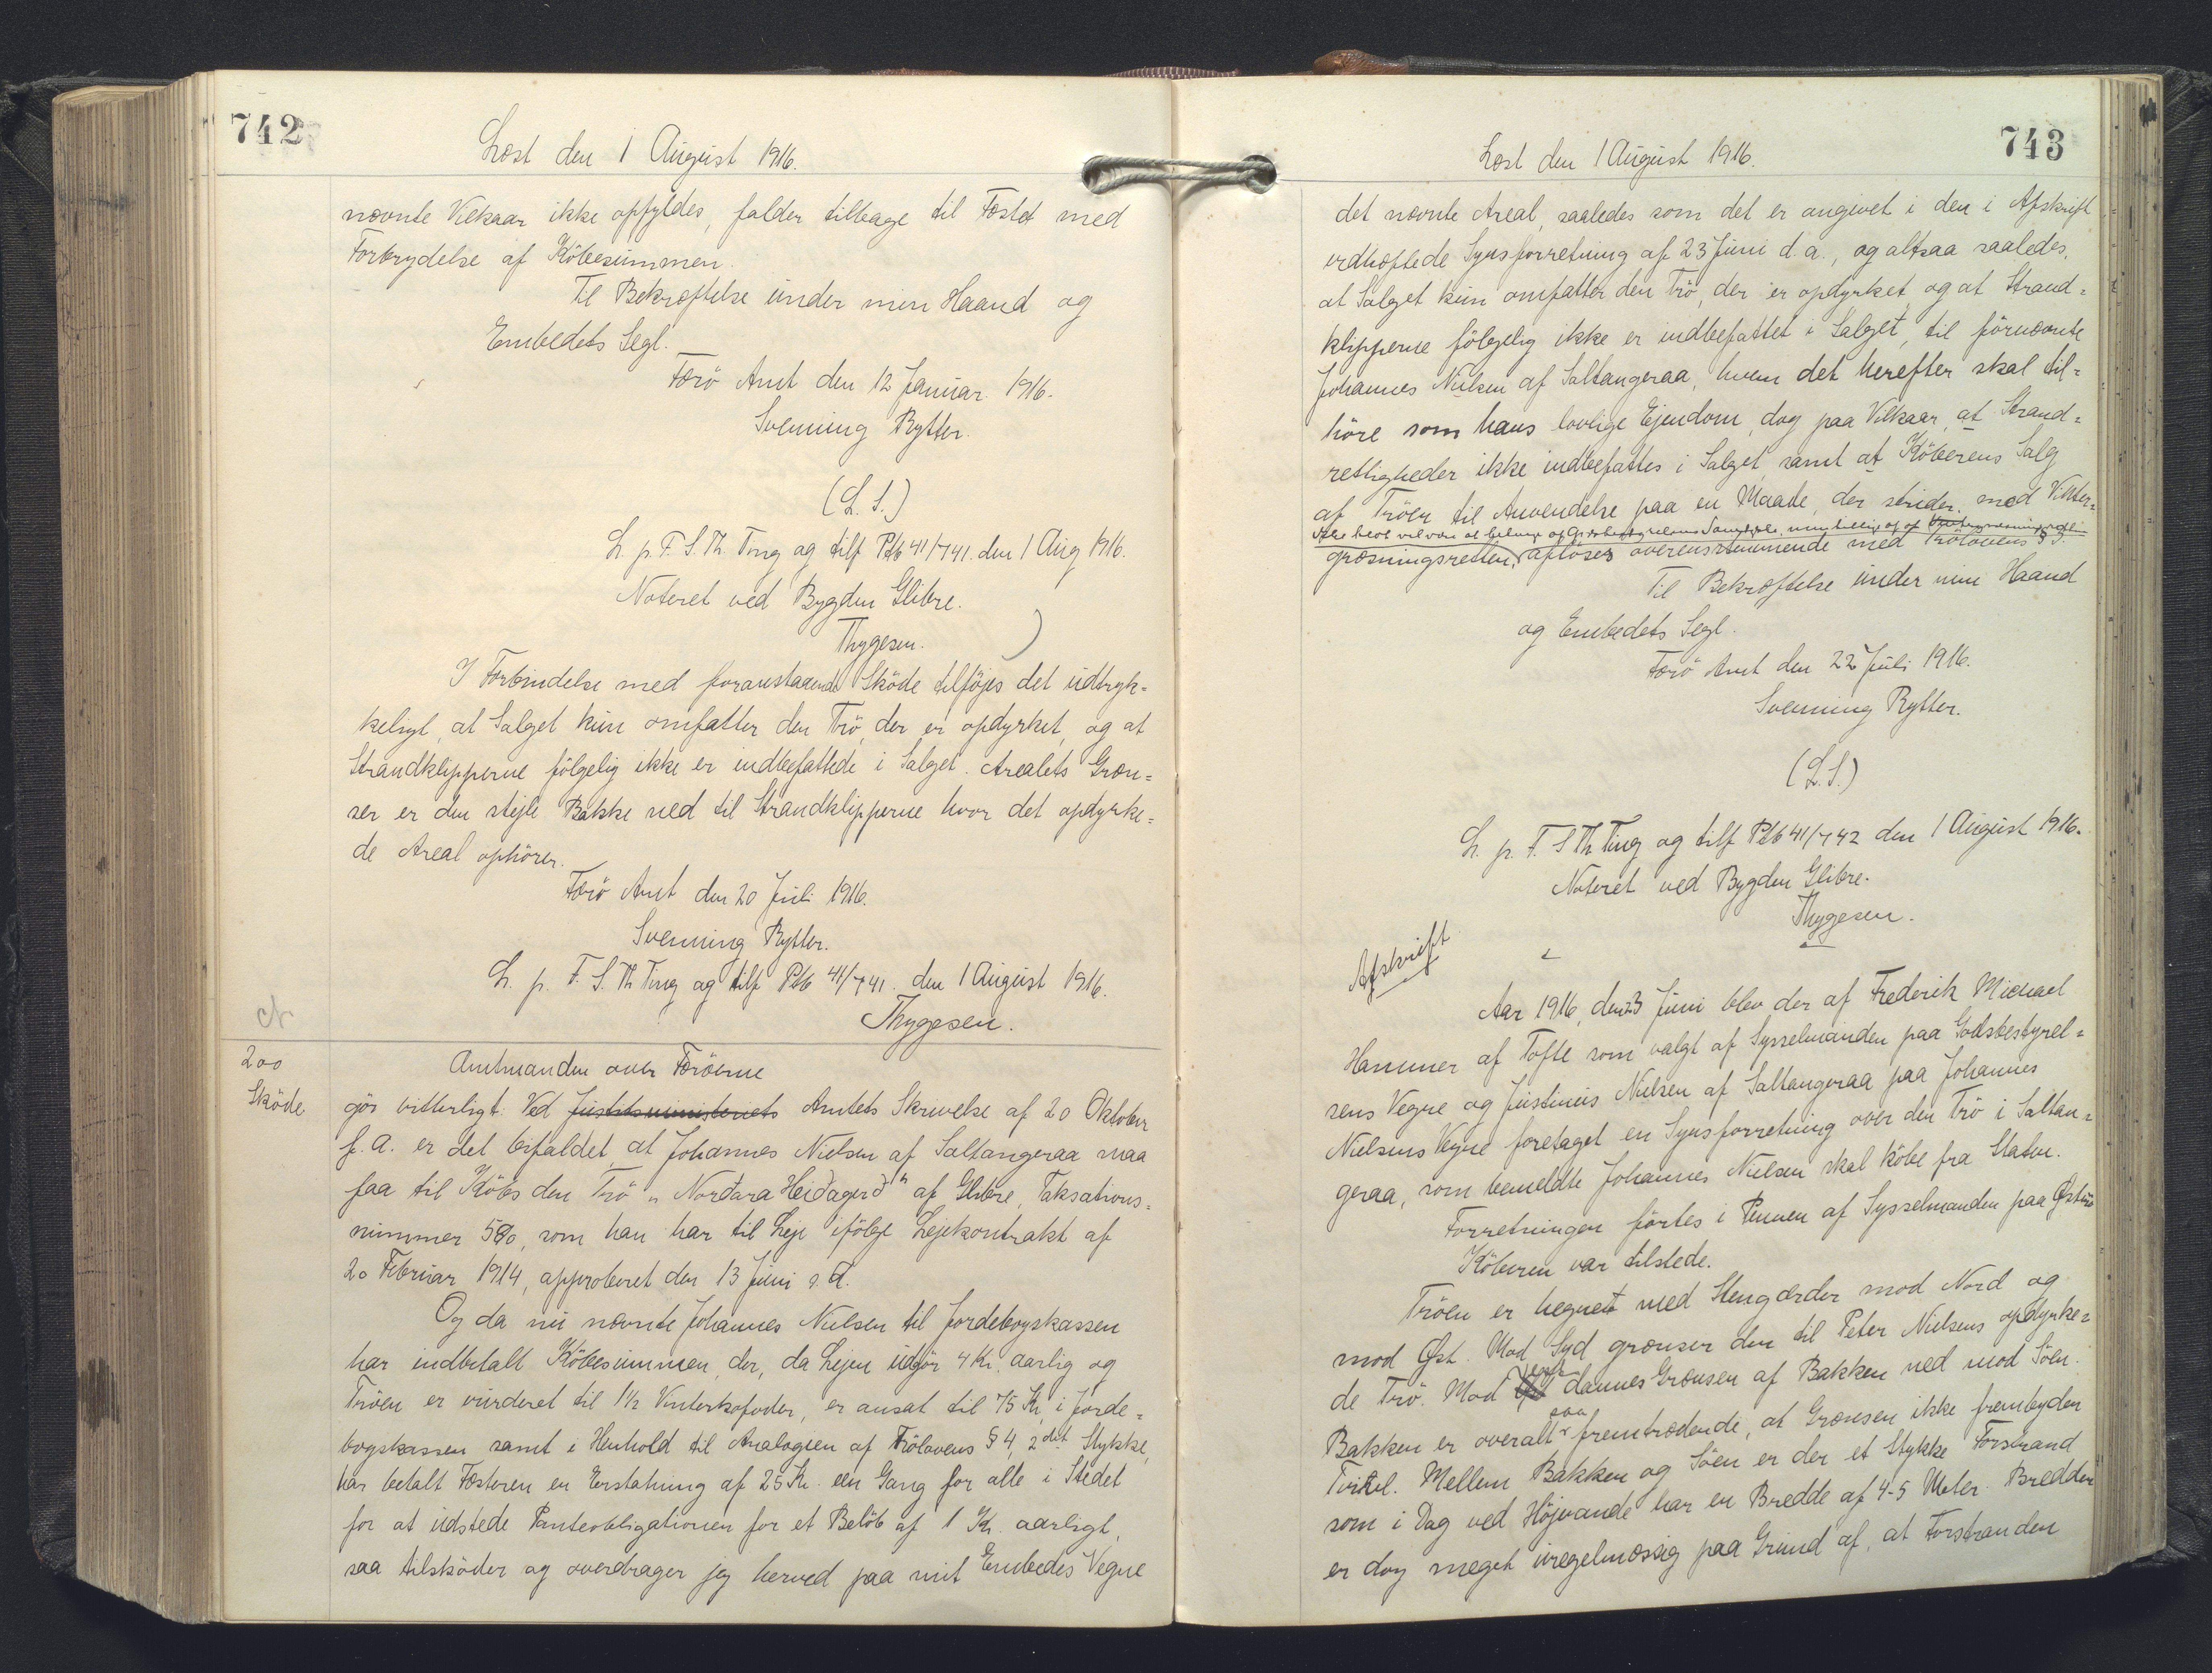 742
Læst den 1 August 1916.
nævnte Vilkaar ikke opfyldes, falder tilbage til Fæstet med
Forbrydelse af Købesummen.
Til Bekræftelse under min Haand og
Embedets Segl.
Færø Amt den 12 Januar 1916.
Svenning Rytter.
(L. S.)
L. p. F. S. Th. Ting og tilf Ptb 41/741. den 1 Aug 1916.
Noteret ved Bygden Glibre.
Thygesen.
I Forbindelse med foranstaaende Sköde tilföjes det udtryk=
keligt, at Salget kun omfatter den Trö, der er opdyrket, og at
Strandklipperne fölgelig ikke er indbefattede i Salget. Arealets Græn=
ser er den stejle Bakke ned til Strandklipperne hvor det opdyrke=
de Areal ophörer.
Færö Amt den 20 Juli 1916.
Svenning Rytter.
L. p. F. S. Th Ting og tilf Ptb 41/741. den 1 August 1916.
Thygesen.
200
Sköde
Amtmanden over Færöerne
gör vitterligt: Ved Justitsministeriets Amtets Skrivelse af 20 Oktober
f. A. er det bifaldet, at Johannes Nielsen af Saltangeraa maa
faa til Köbs den Trö „Nordara Heidagerd“ af Glibre, Taksations=
nummer 580, som han har til Leje ifölge Lejekontrakt af
20 Februar 1914, approberet den 13 Juni s. A.
Og da nu nævnte Johannes Nielsen til Jordebogskassen
har indbetalt Köbesummen, der, da Lejen udgör 4 Kr. aarlig og
Tröen er vurderet til 1½ Vinterkofoder, er ansat til 75 Kr, i Jorde=
bogskassen samt i Henhold til Analogien af Trölovens § 4, 2det Stykke,
har betalt Fæsteren en Erstatning af 25 Kr. een Gang for alle i Stedet
for at udstede Panteobligationen for et Belöb af 1 Kr. aarligt,
saa tilsköder og overdrager jeg herved paa mit Embedes Vegne
743
Læst den 1 August 1916.
det nævnte Areal, saaledes som det er angivet i den i Afskrift
vedhæftede Synsforretning af 23 Juni d. a., og altsaa saaledes,
at Salget kun omfatter den Trö, der er opdyrket og at Strand=
klipperne fölgelig ikke er indbefattet i Salget, til förnævnte
Johannes Nielsen af Saltangeraa, hvem det herefter skal til=
höre som hans lovlige Ejendom, dog paa Vilkaar, at Strand=
rettigheder ikke indbefattes i Salget, samt at Köberens Salg
af Tröen til Anvendelse paa en Maade, der strider mod Vinter=
græsningsretten, aflöses overensstemmende med Trölovens § 5.
Til Bekræftelse under min Haand
og Embedets Segl.
Færö Amt den 22 Juli 1916.
Svenning Rytter.
(L.S.)
L. p. F. S Th Ting og tilf Ptb 41/742 den 1 August 1916.
Noteret ved Bygden Glibre.
Thygesen.
Afskrift
Aar 1916, den 23 Juni blev der af Frederik Michael
Hammer af Tofte som valgt af Sysselmanden paa Godsbestyrel=
sens Vegne og Justinus Nielsen af Saltangeraa paa Johannes
Nielsens Vegne foretaget en Synsforretning over den Trö i Saltan=
geraa, som bemeldte Johannes Nielsen skal köbe fra Staten.
Forretningen förtes i Pennen af Sysselmanden paa Österö
Köberen var tilstede.
Tröen er hegnet med Stengærder mod Nord og
mod Øst. Mod Syd grænser den til Peter Nielsens opdyrke=
de Trö. Mod Vest dannes Grænsen af Bakken ned mod Söen.
Bakken er overalt saa fremtrædende, at Grænsen ikke frembyder
Tvivl. Mellem Bakken og Söen er der et Stykke Forstrand
som i Dag ved Höjvande har en Bredde af 4-5 Meter. Bredden
er dog meget uregelmæssig paa Grund af, at Forstranden